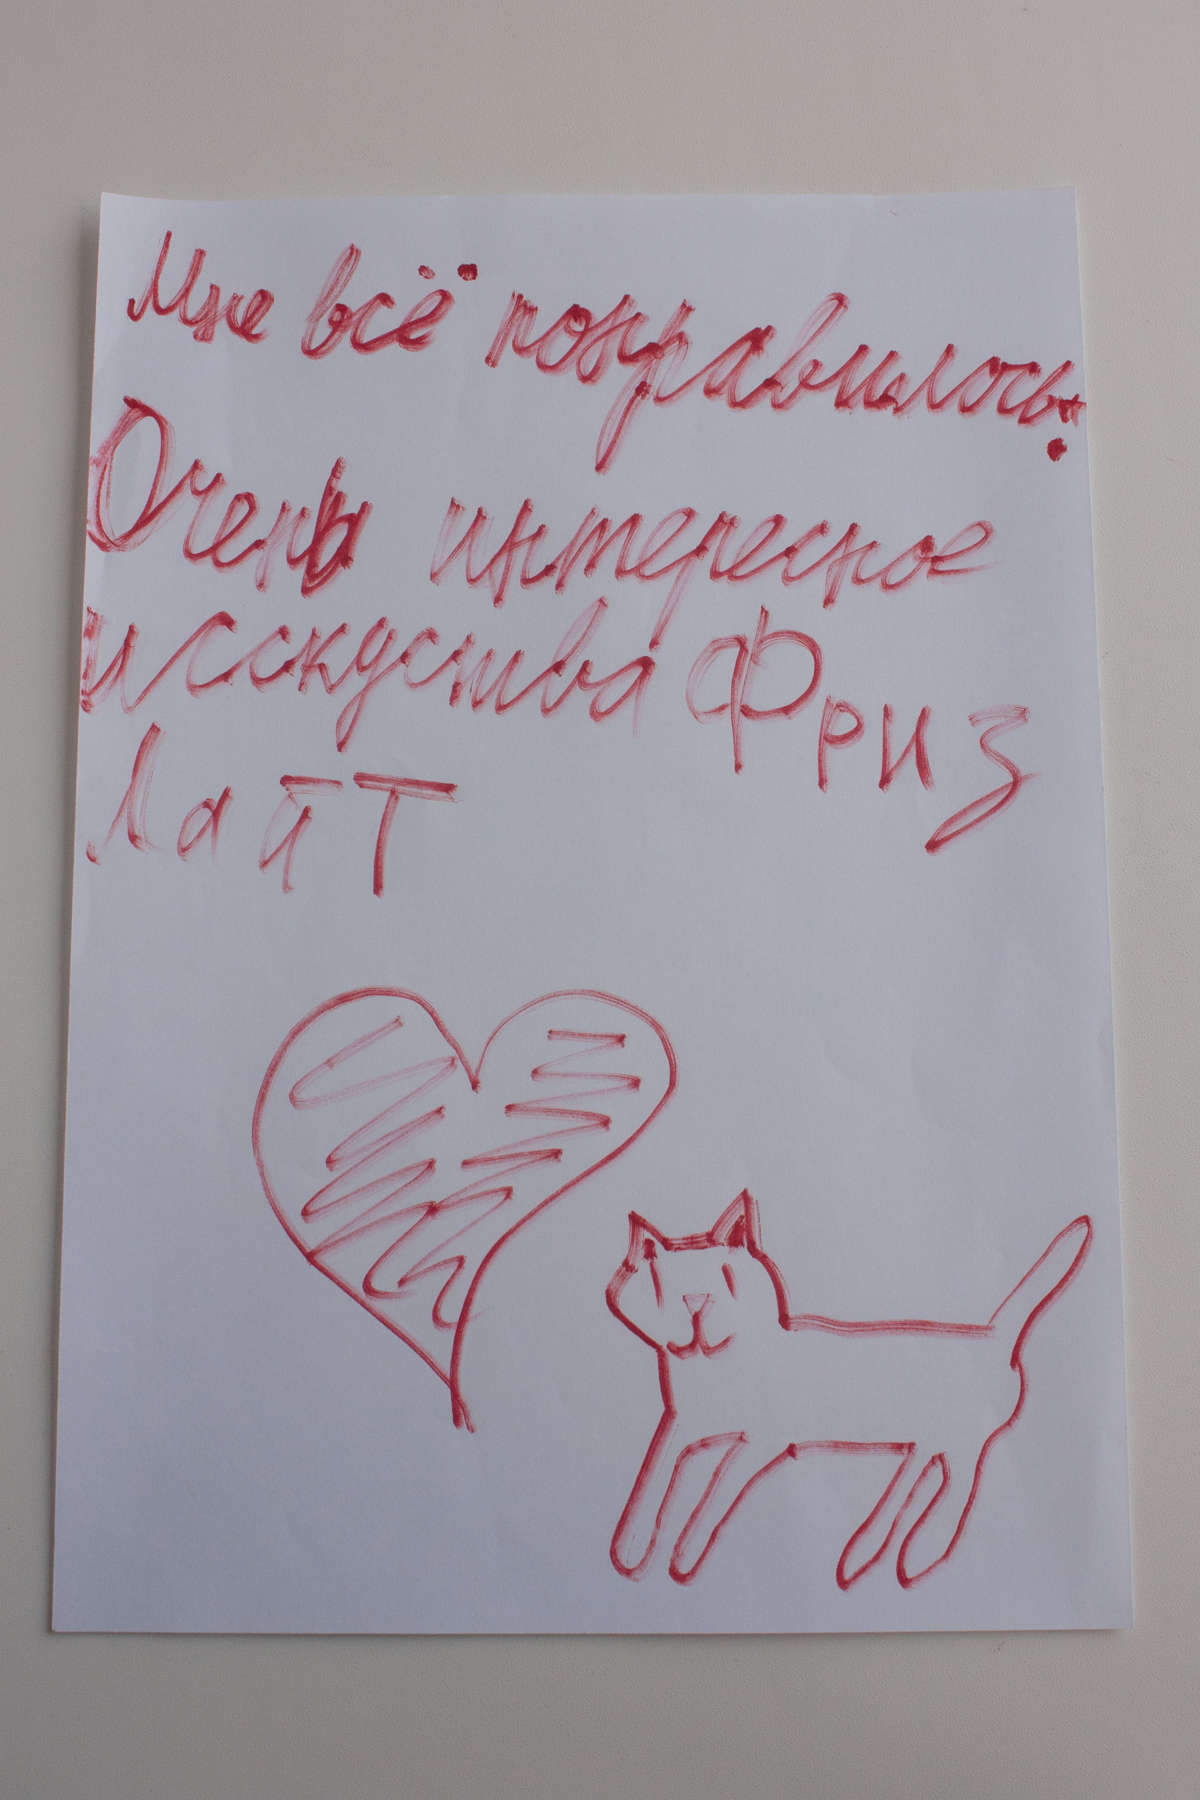 Мне всё понравилось!
Очень интересное
исскуства Фриз
Лайт